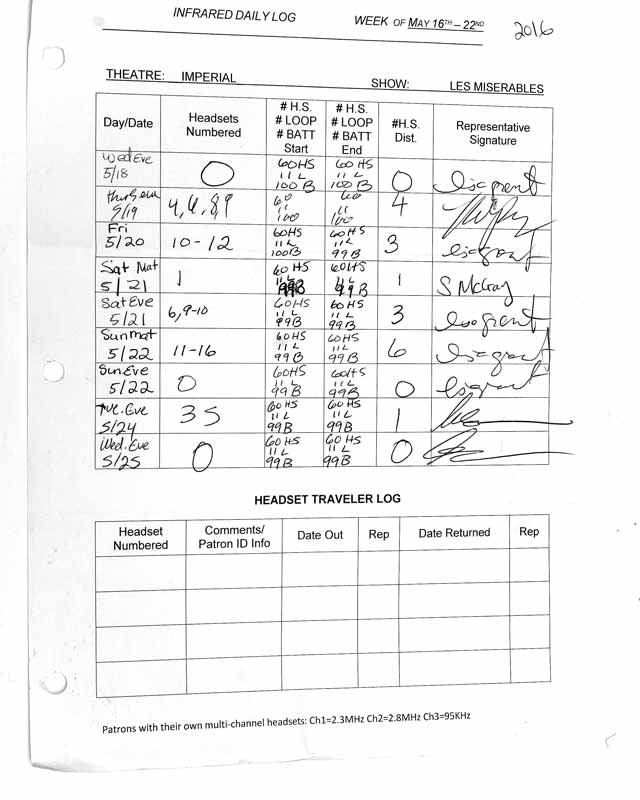 INFRARED DAILY LOG WEEK OF MAY 16TH – 22ND 2016
THEATRE: IMPERIAL SHOW: LES MISERABLES
Day/Date
Headsets
Numbered
# H.S.
# LOOP
# BATT
Start
# H.S.
# LOOP
# BATT
End
#H.S.
Dist.
Representative
Signature
Wed Eve
5/18
0
60HS
11 L
100 B
60 HS
11 L
100 B
0
5/19
4, 6, 8, 9
60
11
100
60
11
100
4
Fri
5/20
10-12
60HS
11L
100B
60HS
11L
99 B
3
Sat Mat
5/21
1
60 HS
11 L
99B
60HS
11 L
99 B
1
S McGray
Sat Eve
5/21
6, 9-10
60HS
11 L
99B
60 HS
11 L
99B
3
Sun Mat
5/22
11-16
60HS
11 L
99B
60HS
11 L
99B
6
Sun Eve
5/22
0
60HS
11 L
99B
60HS
11 L
99B
0
Tue. Eve
5/24
35
60 HS
11 L
99B
60 HS
11 L
99B
1
Wed. Eve
5/25
0
60 HS
11 L
99B
60 HS
11 L
99B
0
HEADSET TRAVELER LOG
Headset
Numbered
Comments/
Patron ID Info
Date Out
Rep
Date Returned
Rep
Patrons with their own multi-channel headsets: Ch1=2.3MHz Ch2=2.8MHz Ch3=95KHz